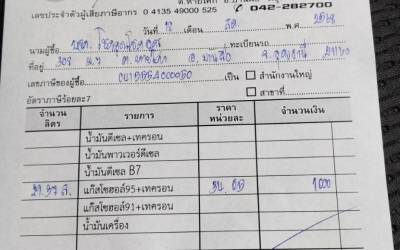 ต.หายโศก อ.บ้านผือ
เลขประจำตัวผู้เสียภาษีอากร 0 4135 49000 525 042-282700
วันที่ 12 เดือน สค พ.ศ. 2568
นามผู้ซื้อ บจก. ทะเบียนรถ
ที่อยู่ 303 ม.7 ต.หายโศก อ.บ้านผือ จ.อุดรธานี 41160
เลขภาษีของผู้ซื้อ เป็น สำนักงานใหญ่
อัตราภาษีร้อยละ7 สาขาที่
จำนวนลิตร รายการ ราคาหน่วยละ จำนวนเงิน
น้ำมันดีเซล+เทครอน
น้ำมันพาวเวอร์ดีเซล
น้ำมันดีเซล B7
แก๊สโซฮอล์95+เทครอน 1000
แก๊สโซฮอล์91+เทครอน
น้ำมันเครื่อง